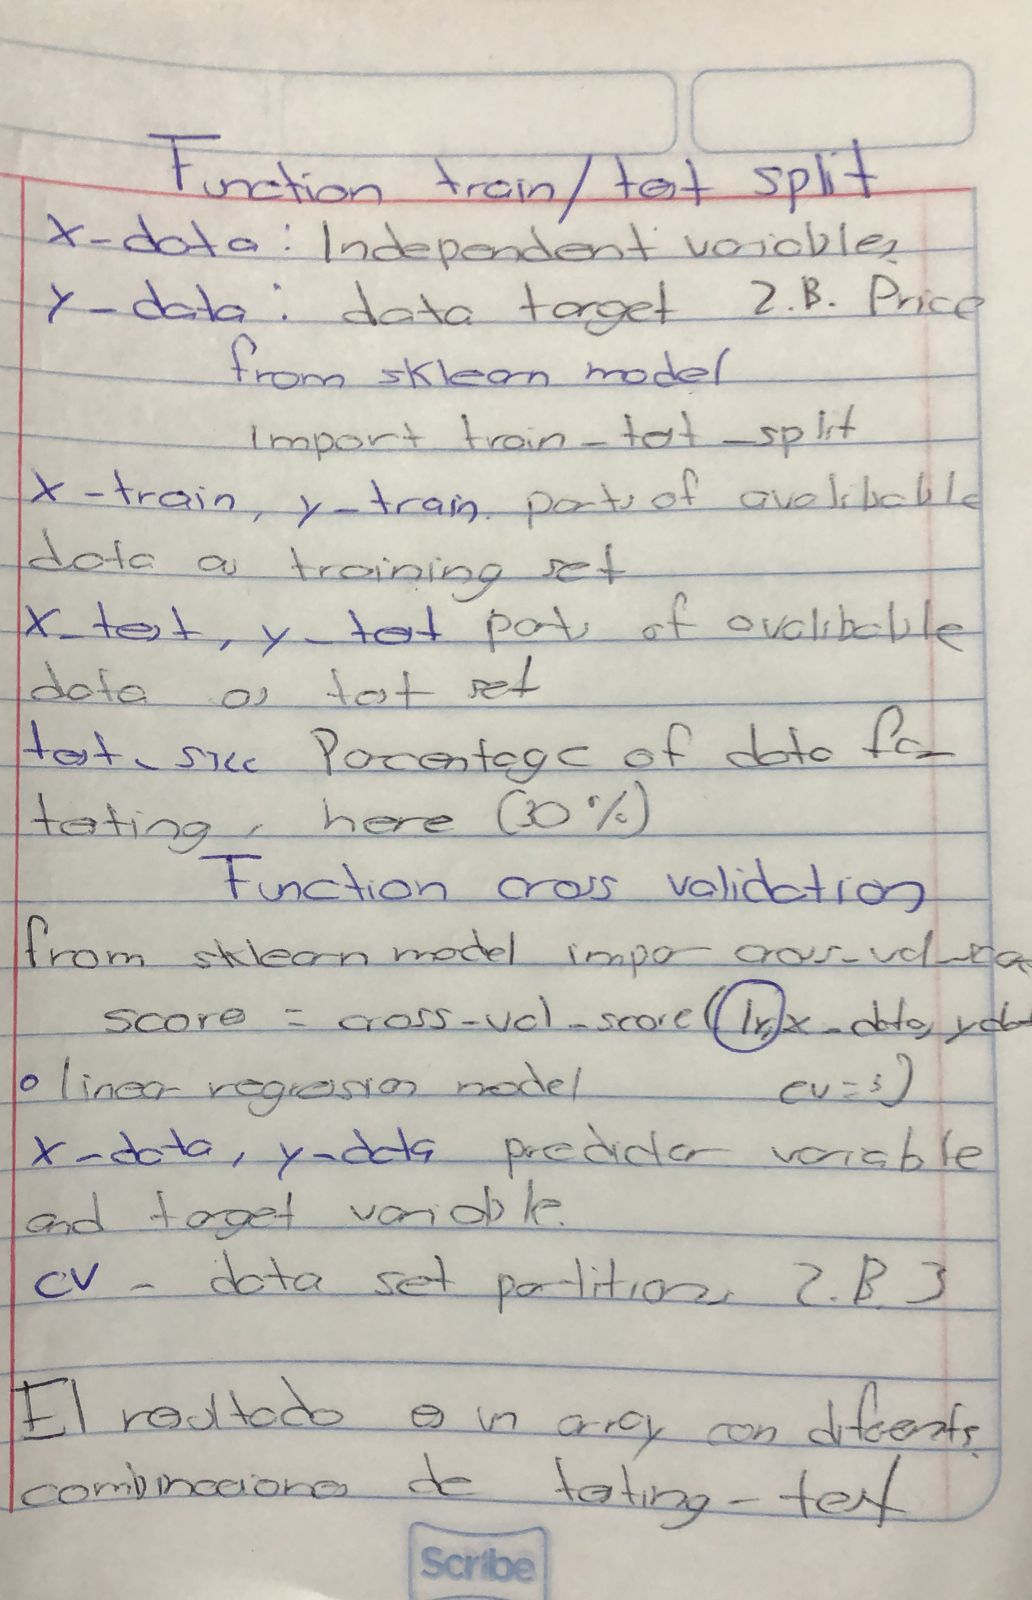 Function train/test split
x-data: Independent variables
y-data: data target Z.B. Price
from sklean model
import train-test-split
x-train, y-train. parts of avalibable
data as training set
x-test, y-test parts of avalibable
data as test set
test-size Porcentage of data for
testing, here (30%)
Function cross validation
from sklean model impor cross-val-
score = cross-val-score(lr,x-data, ydat
o linear regresion model cv=3)
x-data, y-data predictor variable
and target variable.
cv - data set partitions Z.B. 3
El resultado es un array con diferentes
combinaciones de testing-test
Scribe